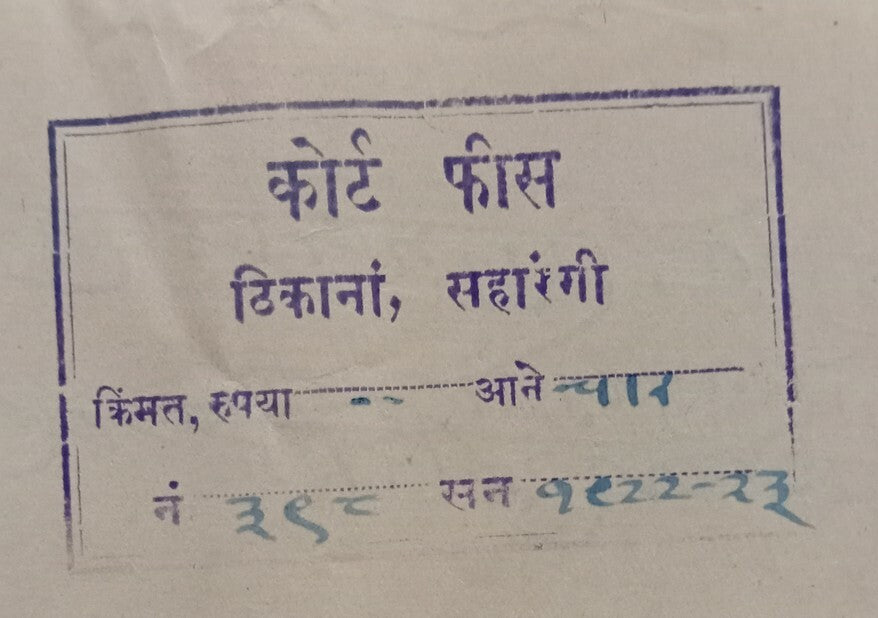 कोर्ट फीस
ठिकानां, सहारंगी
किंमत, रुपया -- आने चार
नं ३९८ सन १९२२-२३